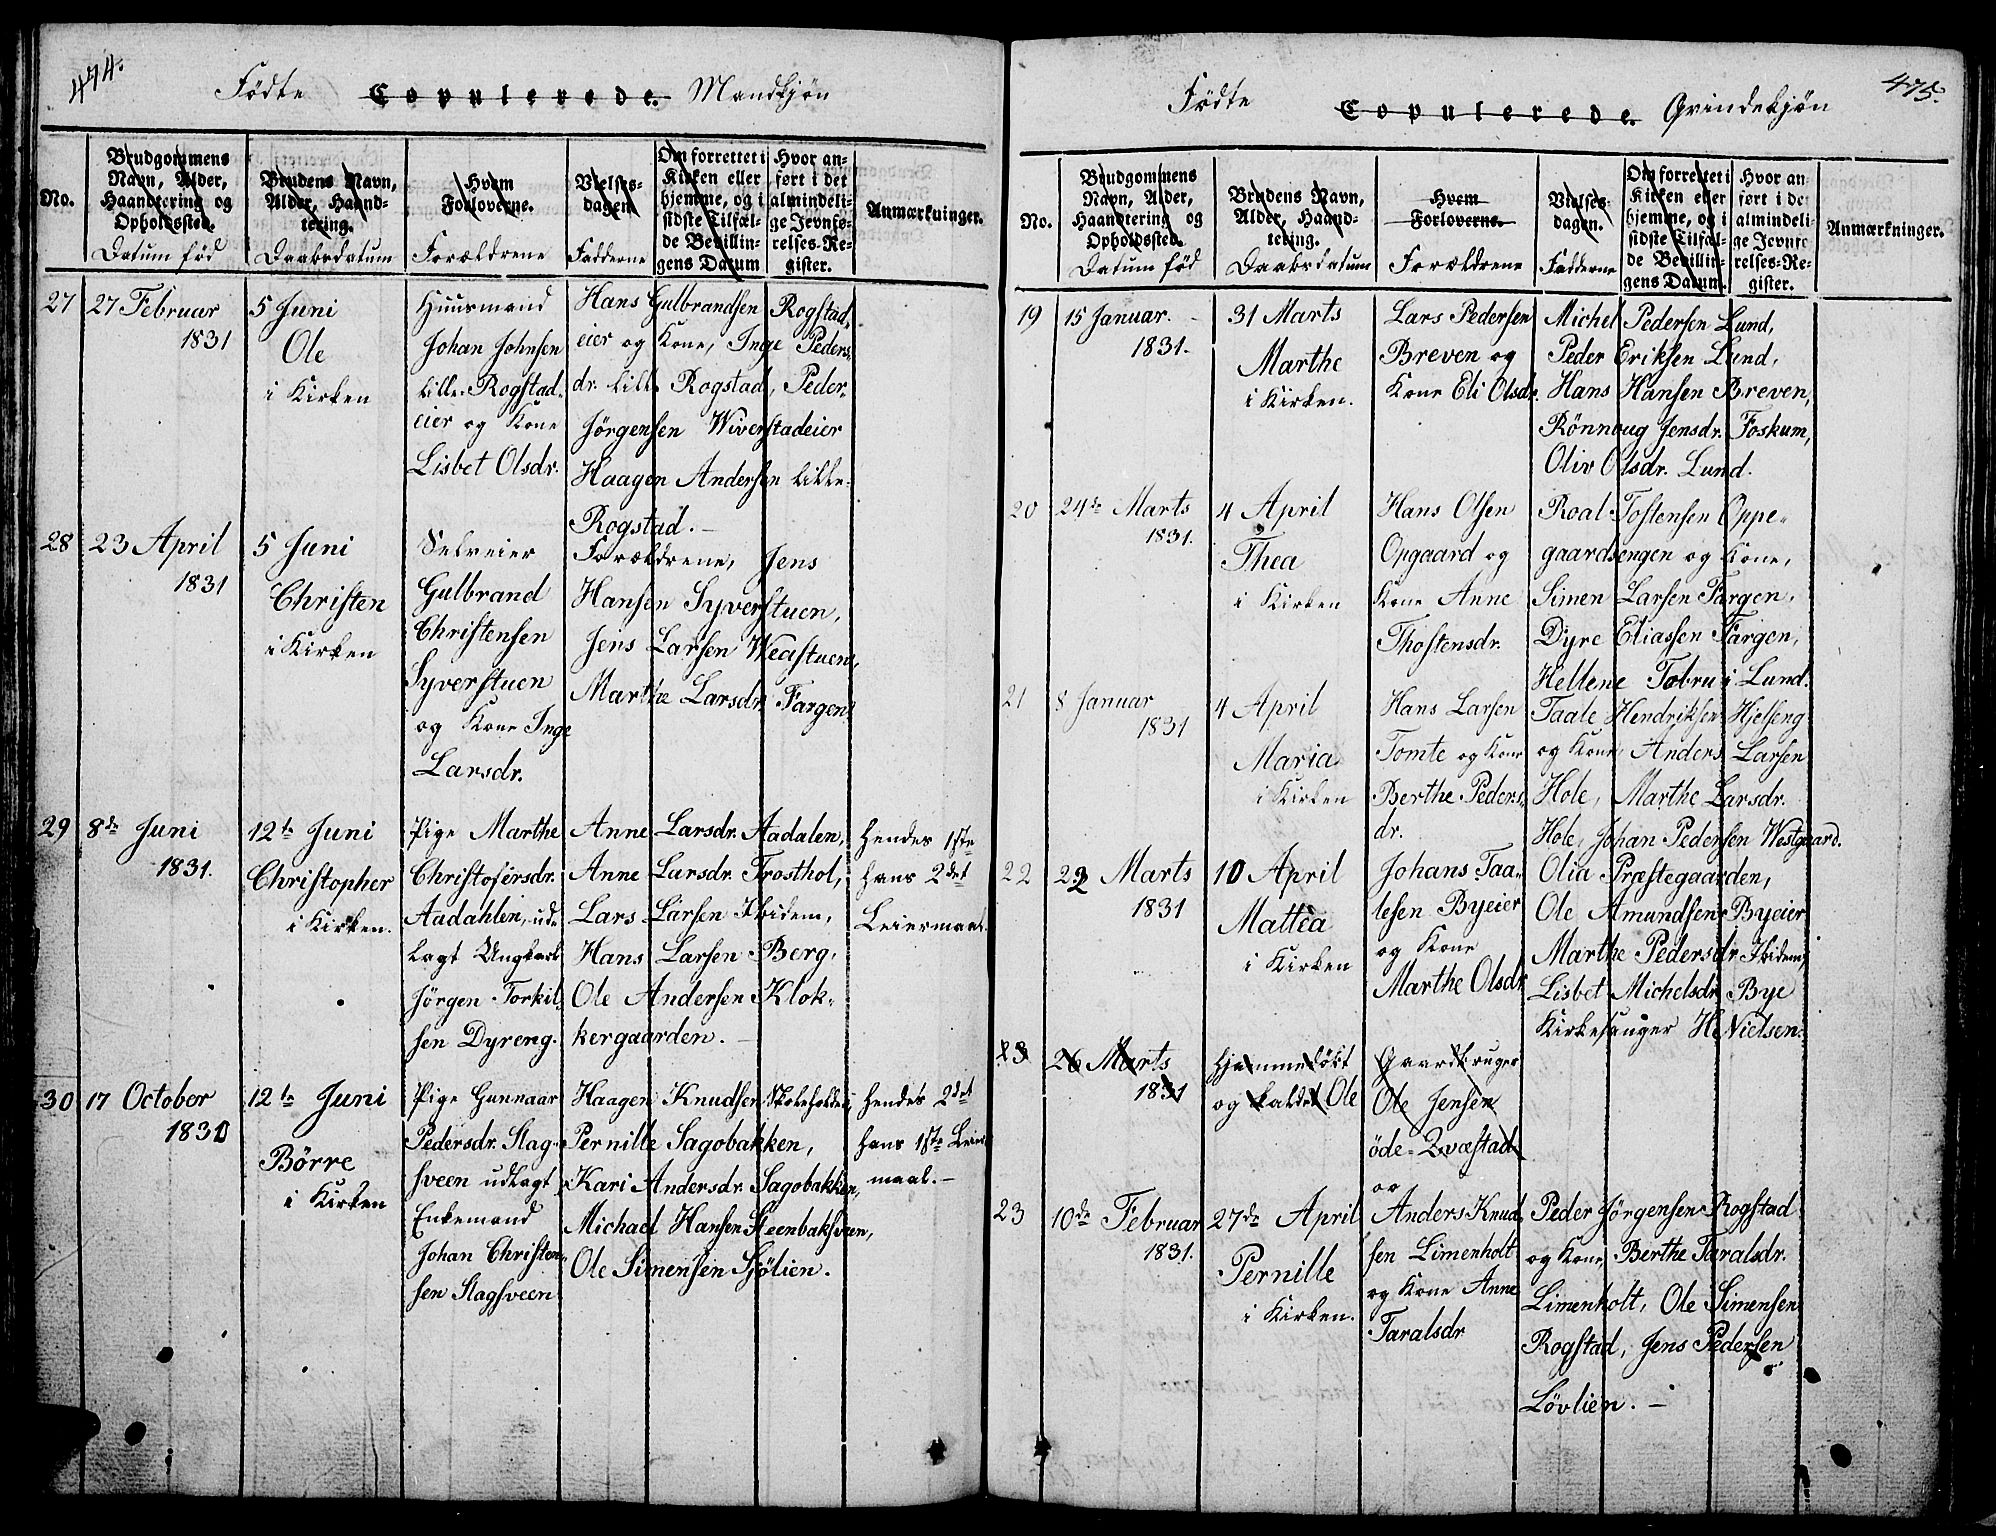 474.
Födte Copulerede. Mandkjön
No.
Brudgommens Navn, Alder, Haandtering og Opholdssted.
Datum fød
Brudens Navn, Alder, Haandtering.
Daabsdatum
Hvem Forloverne.
Forældrene
Vielsesdagen.
Fadderne
Om forrettet i Kirken eller hjemme, og i sidste Tilfælde Bevillingens Datum
Hvor anført i det almindelige Jevnførelses-Register.
Anmærkninger.
27
27 Februar
1831
5 Juni
Ole
i Kirken
Huusmand
Johan Johnsen
Lille-Rogstad-
eier og Kone
Lisbet Olsdr.
Hans Gulbrandsen Rogstad-
eier og Kone, Inge Peders-
dr. Lille Rogstad, Peder
Jörgensen Wiverstadeier
Haagen Andersen Lille-
Rogstad. —
28
23 April
1831
5 Juni
Christen
i Kirken
Selveier
Gulbrand
Christensen
Syverstuen
og Kone Inge
Larsdr.
Forældrene, Jens
Hansen Syverstuen,
Jens Larsen Weastuen,
Marthe Larsdr. Fargen
29
8de Juni
1831.
12te Juni
Christopher
i Kirken.
Pige Marthe
Christofersdr.
Aadahlen, ud-
lagt Ungkarl
Jörgen Torkil-
sen Dyreng.
Anne Larsdr. Aadalen,
Anne Larsdr. Frosthol,
Lars Larsen Ibidem,
Hans Larsen Berg,
Ole Andersen Klok-
kergaarden. —
Hendes 1ste
Hans 2det
Leiermaal.
30
17 October
1830
12te Juni
Börre
i Kirken
Pige Gunnaar
Pedersdr. Slag-
sveen udlagt
Enkemand
Johan Christen-
sen Slagsveen
Haagen Knudsen Skoleholder,
Pernille Sagobakken,
Kari Andersdr. Sagobakken,
Michael Hansen Steenbaksveen,
Ole Simensen Sjölien.
Hendes 2det
Hans 1ste Leier-
maal. —
475.
Födte Copulerede. Qvindekjön
No.
Brudgommens Navn, Alder, Haandtering og Opholdssted.
Datum fød
Brudens Navn, Alder, Haandtering.
Daabsdatum
Hvem Forloverne.
Forældrene
Vielsesdagen.
Fadderne
Om forrettet i Kirken eller hjemme, og i sidste Tilfælde Bevillingens Datum.
Hvor anført i det almindelige Jevnførelses-Register.
Anmærkninger.
19
15 Januar.
1831.
31 Marts
Marthe
i Kirken.
Lars Pedersen
Breven og
Kone Eli Olsdr.
Michel Pedersen Lund,
Peder Eriksen Lund,
Hans Hansen Breven,
Rönnoug Jensdr. Foskum,
Oliv Olsdr. Lund.
20
24de Marts
1831.
4 April
Thea
i Kirken
Hans Olsen
Opgaard og
Kone Anne
Thostensdr.
Roal Tostensen Oppe-
gaardsengen og Kone,
Simen Larsen Fargen,
Dyre Eliassen Fargen,
Hellene Tobru i Lund.
21
8 Januar
1831
4 April
Maria
i Kirken
Hans Larsen
Tomte og Kone
Berthe Peders-
dr.
Taale Hendriksen Hjelseng
og Kone, Anders Larsen
Hole, Marthe Larsdr.
Hole, Johan Pedersen Westgaard.
22
22 Marts
1831
10 April
Mattea
i Kirken
Johans Taa-
lesen Byeier
og Kone
Marthe Olsdr
Olia Præstegaarden,
Ole Amundsen Byeier
Marthe Pedersdr Ibidem,
Lisbet Michelsdr Bye
Kirkesanger H. Nielsen.
23
26 Marts
1831
Hjemmedöbt
og kaldet Ole
Gaardbruger
Ole Jensen
öde-Qvæstad
og
23
10de Februar
1831.
27de April
Pernille
i Kirken.
Anders Knud-
sen Limenholt
og Kone Anne
Taralsdr
Peder Jörgensen Rogstad
og Kone, Berthe Taralsdr.
Limenholt, Ole Simensen
Rogstad, Jens Pedersen
Lövlien. —